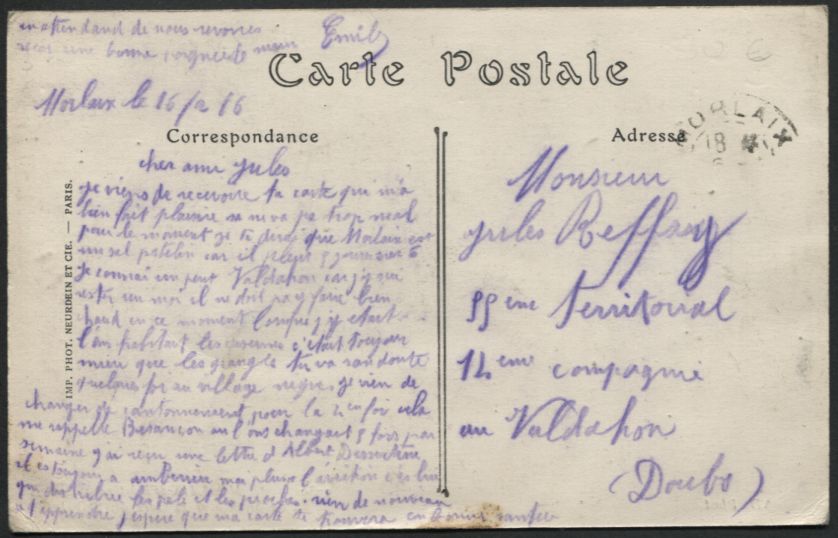 en attendand de nous revoires
une bonne poignee de main Emile
Carte Postale
Morlaix le 16/2 16
Correspondance
Adresse
MORLAIX
18
IMP. PHOT. NEURDEIN ET CIE. — PARIS.
cher ami jules
je viens de recevoire ta carte qui m'a
bien fait plaisire sa ne va pa trop mal
pour le moment je te dirai que Morlaix est
un sel patelin car il pleut 5 jours sur 6
je connai un peut Valdahon car j'y sui
rester un moi il ne doit pa y faire bien
chaud en ce moment lorsque j'y etait
l'on habitant les casernes c'etait toujour
mieu que les granges tu va san doute
quelques foi au village negre je vien de
changer de cantonnement pour la foi cela
me rappelle Besançon ou l'ons changait 5 fois par
semaine j'ai reçu une lettre d'Albert
il es toujour a
que distribue les et les . rien de nouveau
a t'apprendre j'espere que ma carte te trouvera en bonne santee
Monsieur
jules Reffay
55 ème Territorial
12 eme compagnie
au Valdahon
(Doubs)